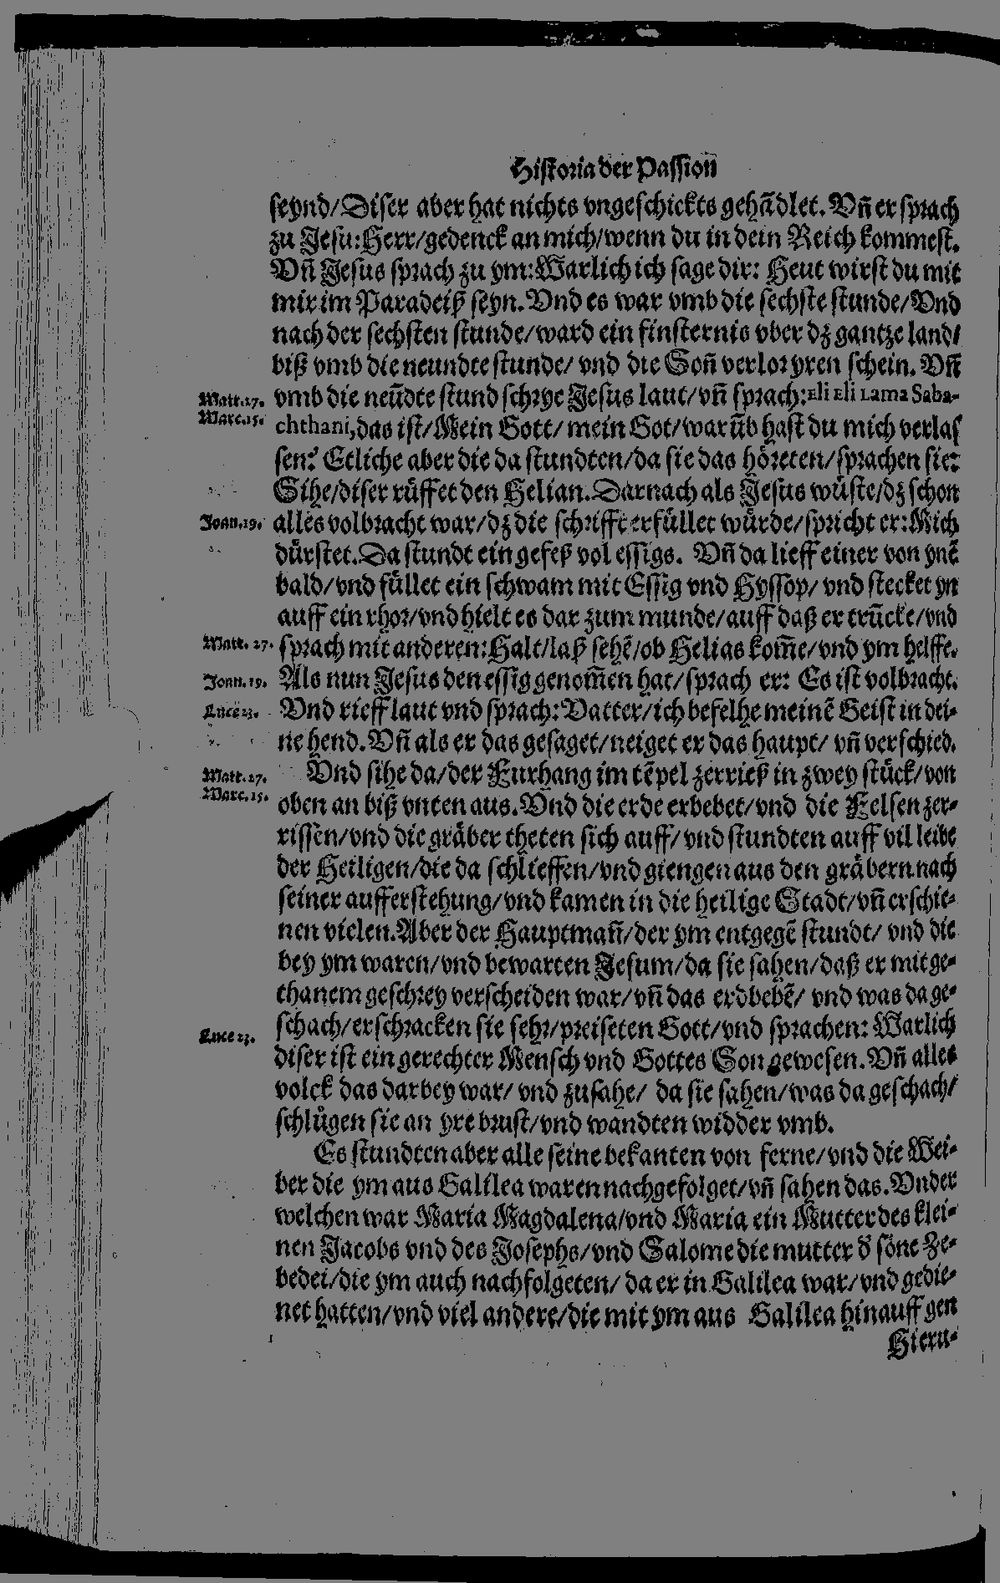 Historia der Passion̄
seynd/Diser aber hat nichts vngeschickts gehādlet. Vn̄ er sprach
zu Jesu: Herr/gedenck an mich/wenn du in dein Reich kommest.
Vn̄ Jesus sprach zu ym: Warlich ich sage dir: Heut wirst du mit
mir im Paradeiß seyn. Vnd es war vmb die sechste stunde/Vnd
nach der sechsten stunde/ward ein finsternis vber dz gantze land/
biß vmb die neundte stunde/ vnd die Son̄ verlor yren schein. Vn̄
Matt. 27. vmb die neūdte stund schrye Jesus laut/vn̄ sprach: Eli Eli Lama Saba-
Marc. 15. chthani, das ist/Mein Gott/ mein Got/warūb hast du mich verlas
sen? Etliche aber die da stundten/da sie das höreten/sprachen sie:
Sihe/diser rüffet den Helian. Darnach als Jesus wüste/dz schon
Joan. 19. alles volbracht war/dz die schrifft erfüllet würde/spricht er: Mich
dürstet. Da stundt ein gefeß vol essigs. Vn̄ da lieff einer von ynē
bald/vnd füllet ein schwam mit Essig vnd Hyssop/ vnd stecket yn
auff ein rhor/vnd hielt es dar zum munde/auff daß er trūcke/vnd
Matt. 27. sprach mit anderen: Halt/laß sehē/ob Helias kom̄e/vnd ym helffe.
Joan. 19. Als nun Jesus den essig genom̄en hat/sprach er: Es ist volbracht.
Luce 23. Vnd rieff laut vnd sprach: Vatter/ich befelhe meinē Geist in dei-
ne hend. Vn̄ als er das gesaget/neiget er das haupt/ vn̄ verschied.
Matt. 27. Vnd sihe da/der Furhang im tēpel zerrieß in zwey stück/von
Marc. 15. oben an biß vnten aus. Vnd die erde erbebet/vnd die Felsen zer-
rissen/vnd die gräber theten sich auff/ vnd stundten auff vil leibe
der Heiligen/die da schlieffen/vnd giengen aus den gräbern nach
seiner aufferstehung/vnd kamen in die heilige Stadt/vn̄ erschie-
nen vielen. Aber der Hauptman̄/der ym entgegē stundt/ vnd die
bey ym waren/vnd bewarten Jesum/da sie sahen/daß er mit ge-
thanem geschrey verscheiden war/vn̄ das erdbebē/ vnd was da ge-
Luce 23. schach/erschracken sie sehr/preiseten Gott/vnd sprachen: Warlich
diser ist ein gerechter Mensch vnd Gottes Son gewesen. Vn̄ alles
volck das darbey war/ vnd zusahe/ da sie sahen/was da geschach/
schlügen sie an yre brust/vnd wandten widder vmb.
Es stundten aber alle seine bekanten von ferne/vnd die Wei-
ber die ym aus Galilea waren nachgefolget/vn̄ sahen das. Vnder
welchen war Maria Magdalena/vnd Maria ein Mutter des klei-
nen Jacobs vnd des Josephs/vnd Salome die mutter d̄ söne Ze-
bedei/die ym auch nachfolgeten/ da er in Galilea war/vnd gedie-
net hatten/vnd viel andere/die mit ym aus Galilea hinauff gen
Hieru-